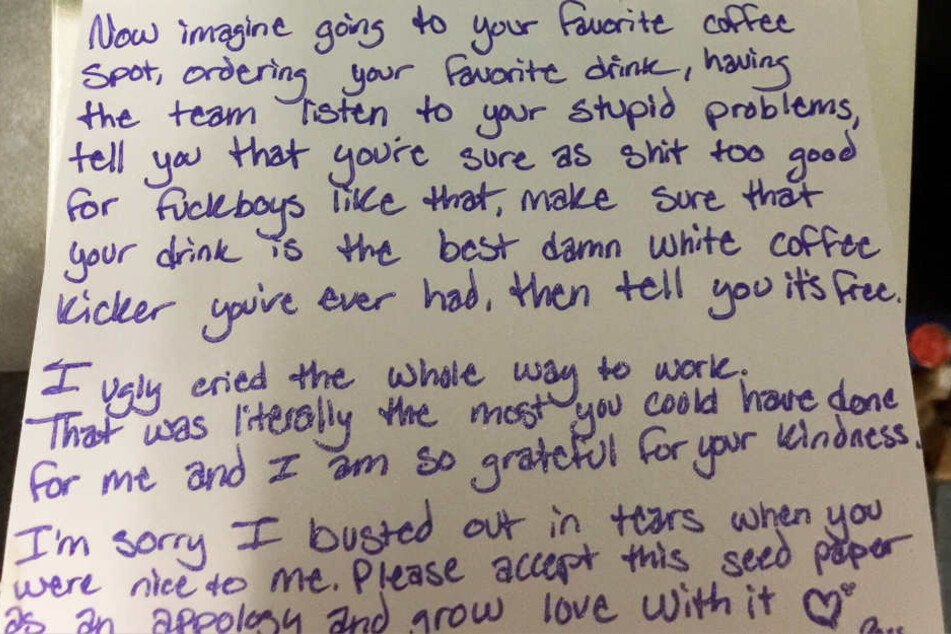 Now imagine going to your favorite coffee
spot, ordering your favorite drink, having
the team listen to your stupid problems,
tell you that you're sure as shit too good
for fuckboys like that, make sure that
your drink is the best damn white coffee
kicker you've ever had, then tell you it's free.
I ugly cried the whole way to work.
That was literally the most you could have done
for me and I am so grateful for your kindness.
I'm sorry I busted out in tears when you
were nice to me. Please accept this seed paper
as an appology and grow love with it